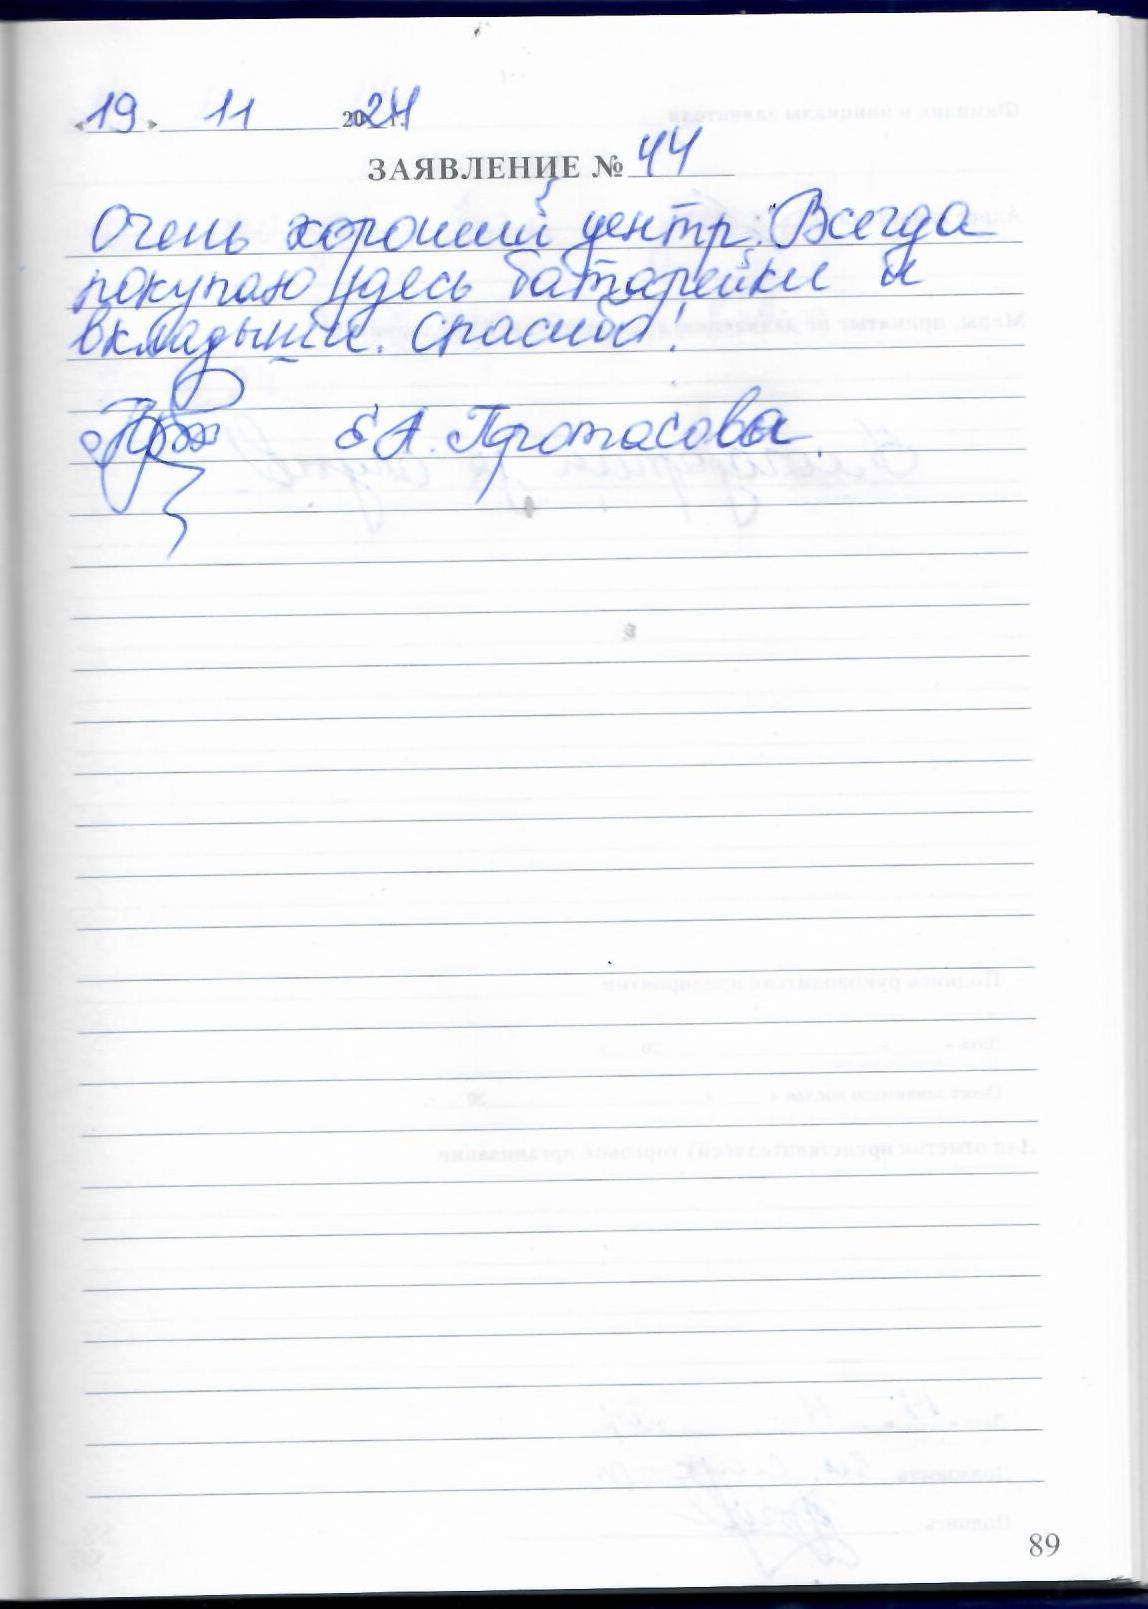 «19» 11 2024 г.
ЗАЯВЛЕНИЕ № 44
Очень хороший центр. Всегда
покупаю здесь батарейки и
вкладыши. Спасибо!
Е.А. Протасова.
89